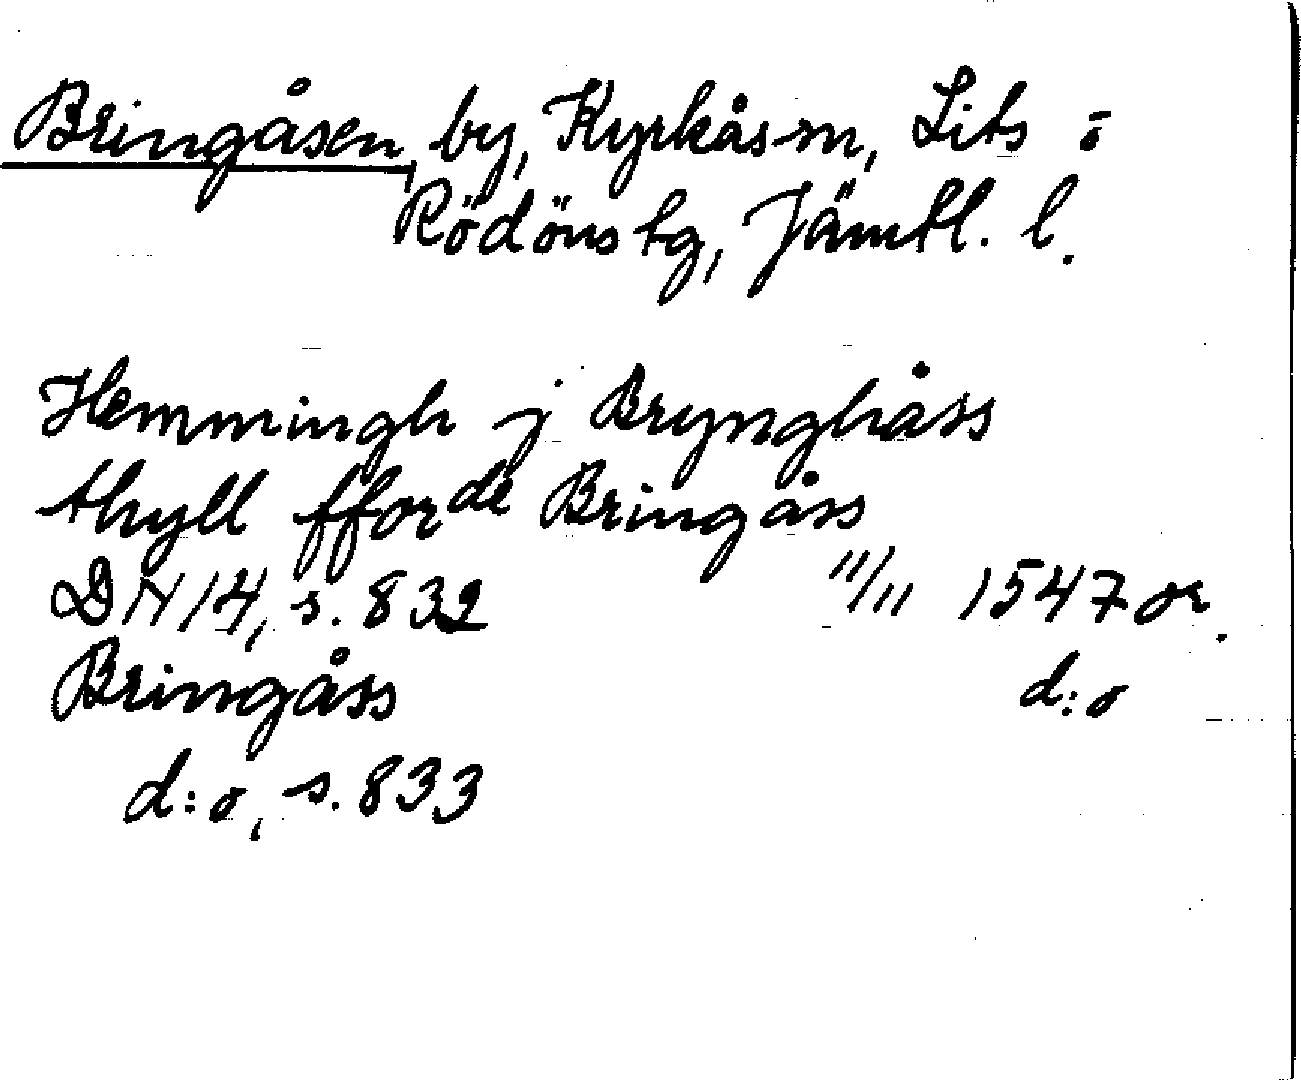 Bringåsen, by, Kyrkås sn, Lits o
Rödöns tg, Jämtl. l.
Hemmingh j Brynghåss
thyll ffor de Bringåss
DN 14, s. 832 11/11 1547 or.
Bringåss d:o
d:o, s. 833